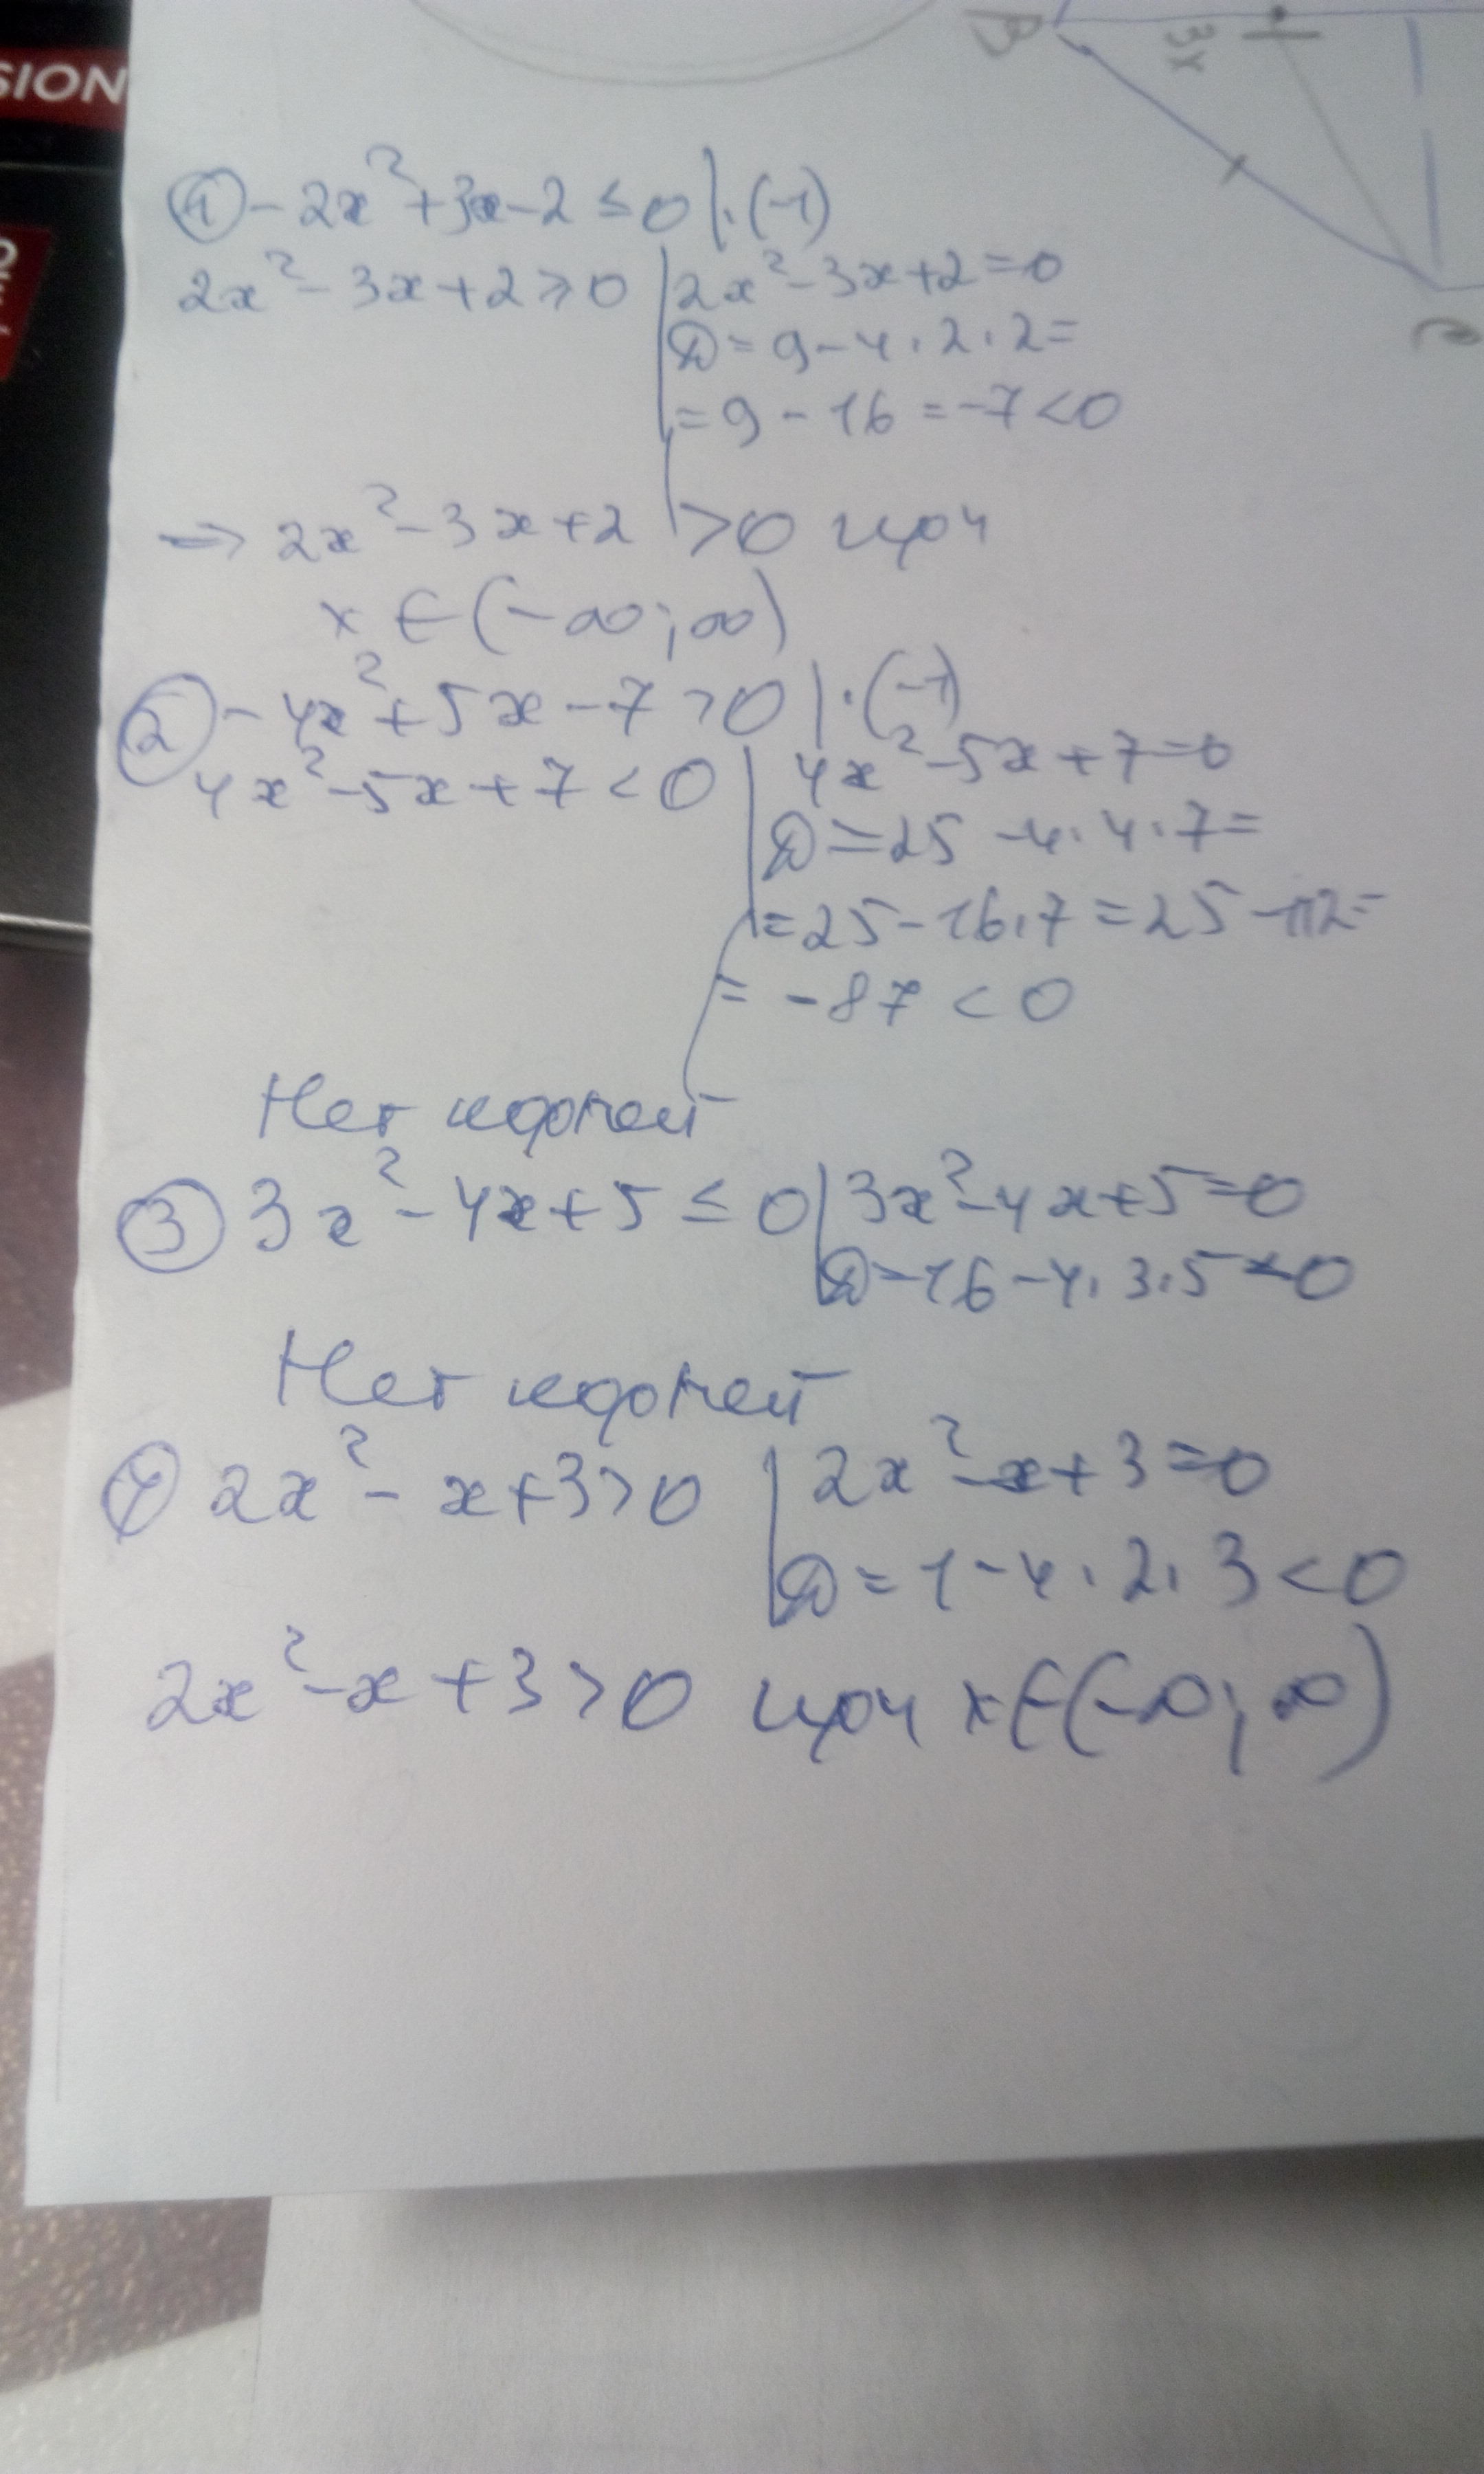 SION
B
3x
C
① -2x²+3x-2 ≤ 0 | ·(-1)
2x²-3x+2 ≥ 0 | 2x²-3x+2=0
D = 9-4·2·2=
= 9-16 = -7<0
⇒ 2x²-3x+2 >0 при
x ∈ (-∞; ∞)
② -4x²+5x-7 >0 | ·(-1)
4x²-5x+7 < 0 | 4x²-5x+7=0
D = 25-4·4·7=
= 25-16·7 = 25-112=
= -87 < 0
Нет корней
③ 3x²-4x+5 ≤ 0 | 3x²-4x+5=0
D=16-4·3·5<0
Нет корней
④ 2x²-x+3>0 | 2x²-x+3=0
D = 1-4·2·3<0
2x²-x+3>0 при x∈(-∞; ∞)